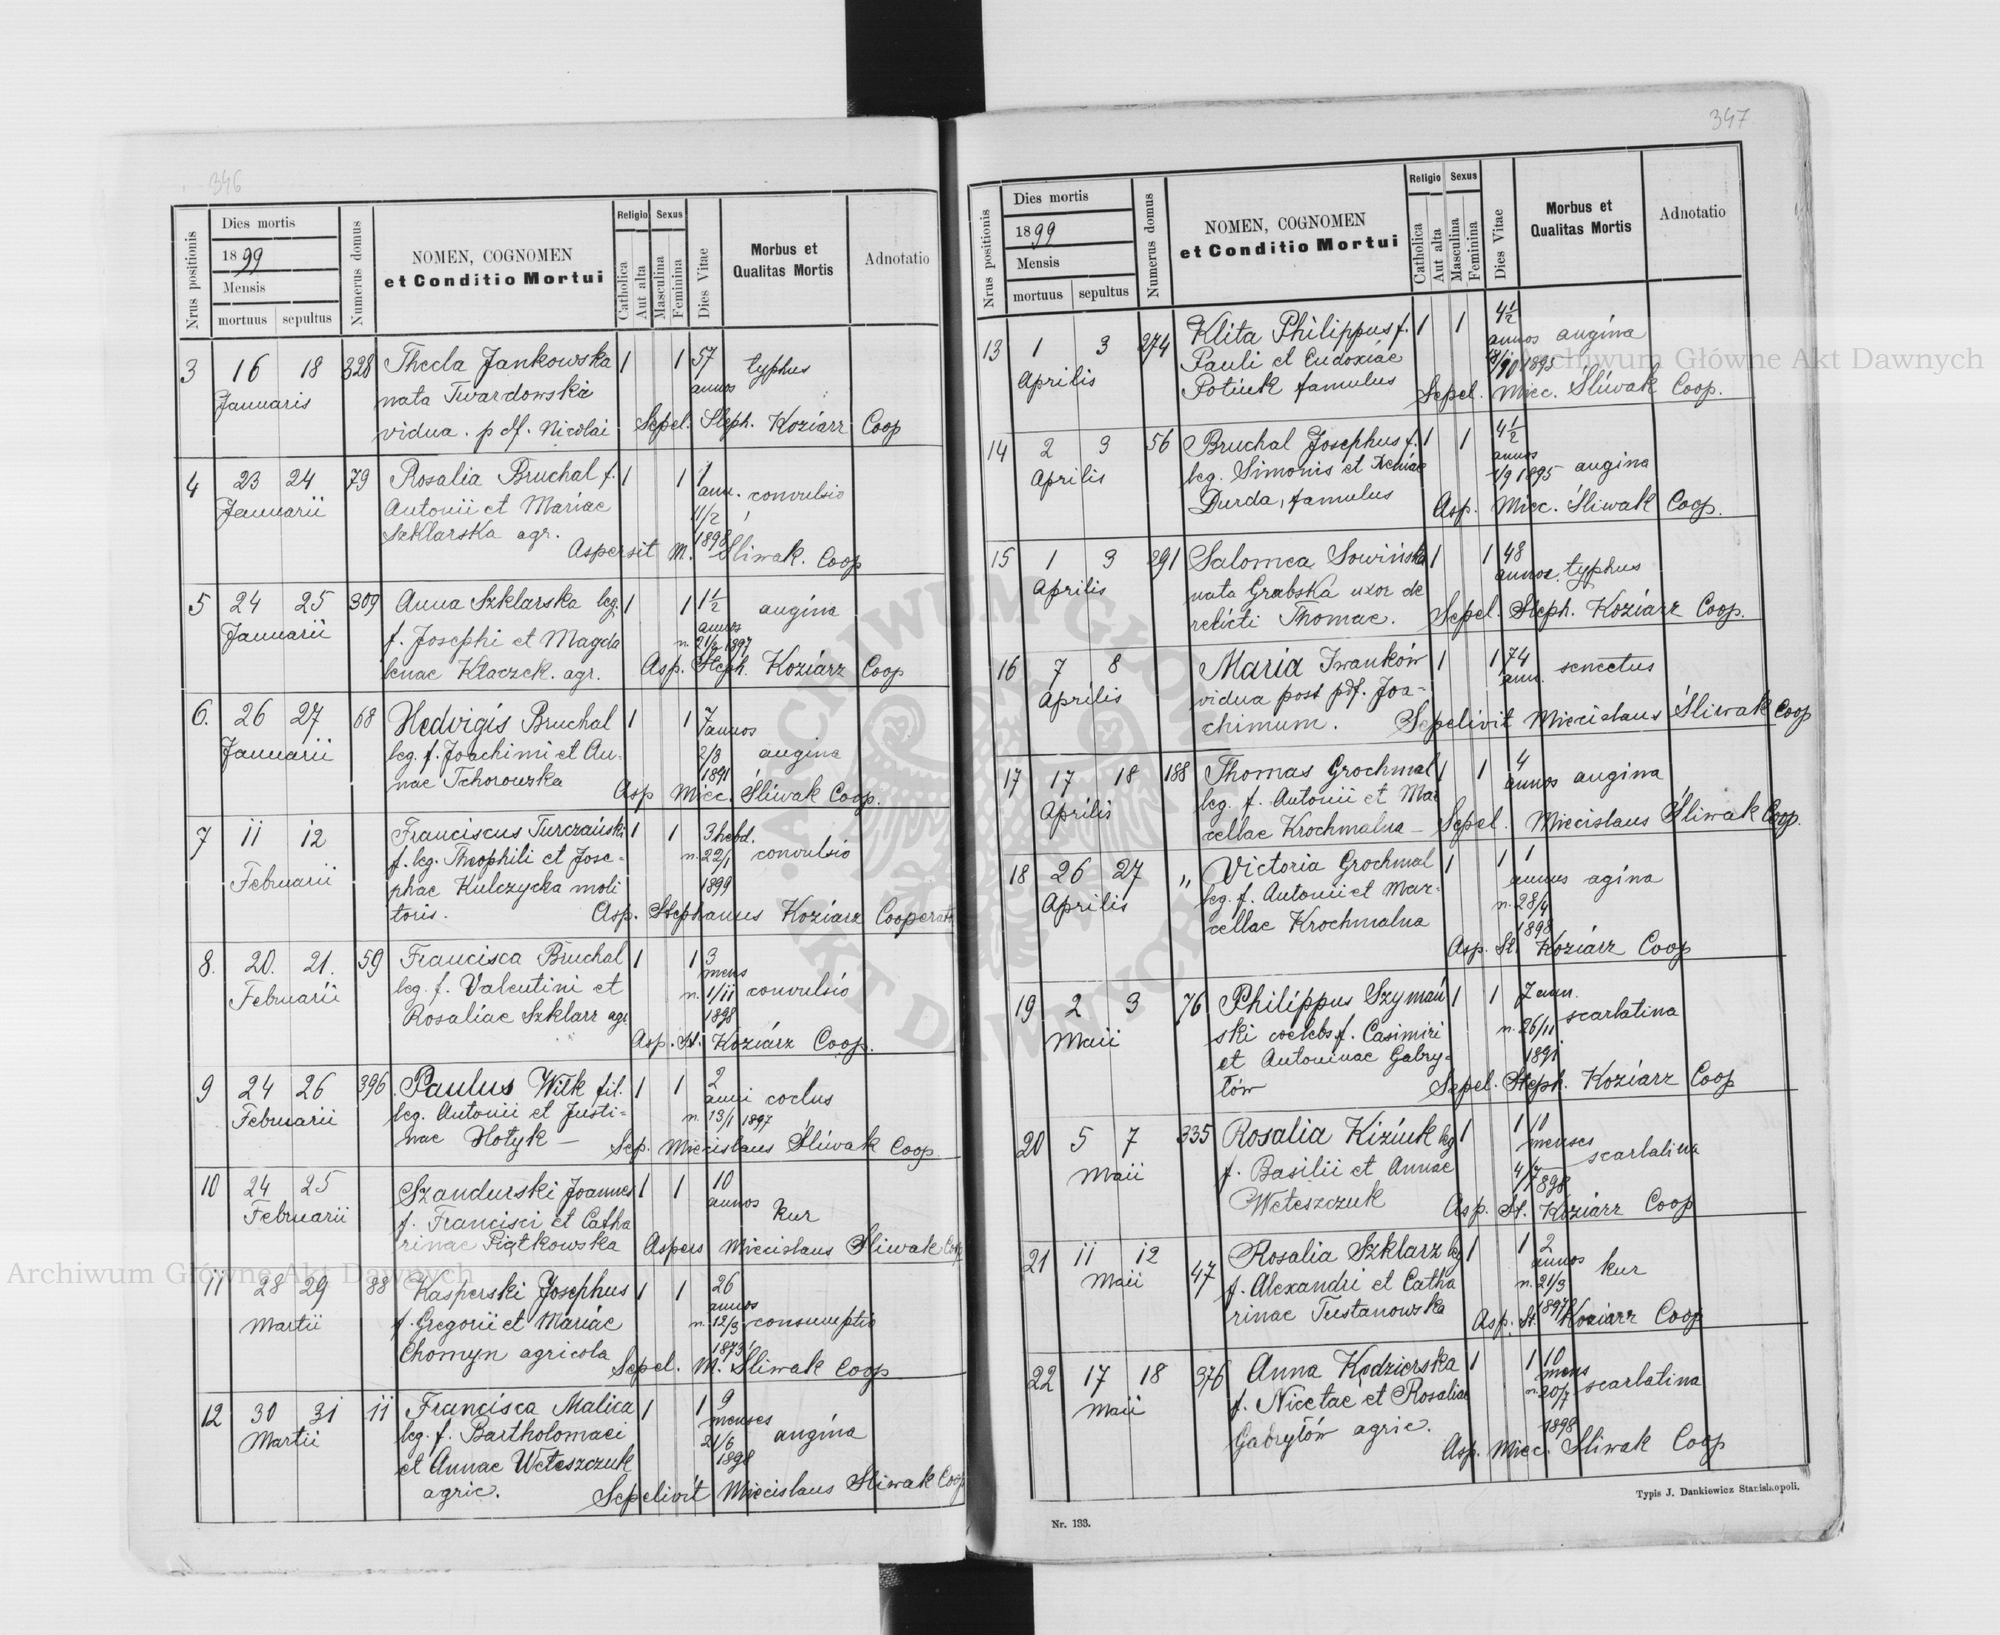 346
Nrus positionis
Dies mortis
1899
Mensis
mortuus sepultus
Numerus domus
NOMEN, COGNOMEN
et Conditio Mortui
Religio
Catholica
Aut alta
Sexus
Masculina
Feminina
Dies Vitae
Morbus et
Qualitas Mortis
Adnotatio
3 16 18 328 Thecla Jankowska 1 1 57 typhus
Januaris nata Twardowska annos
vidua. p df. Nicolai Sepel. Steph. Koziarz Coop
4 23 24 79 Rosalia Bruchal f. 1 1 1
Januarii Antonii et Mariae ann. convulsio
Szklarska agr. 11/2
1898
Aspersit M. Śliwak. Coop
5 24 25 309 Anna Szklarska leg. 1 1 1½ angina
Januarii f. Josephi et Magda annos
n. 21/6 1897
lenae Kłaczek. agr. Asp. Steph. Koziarz Coop
6. 26 27 68 Hedvigis Bruchal 1 1 7 annos
Januarii leg. f. Joachimi et An- 2/3 angina
nae Tchorowska 1891
Asp Miec. Śliwak Coop.
7 11 12 Franciscus Turczański 1 1 3 hebd.
Februarii f. leg. Theophili et Jose- n. 22/1 convulsio
phae Kulczycka moli 1899
toris. Asp. Stephanus Koziarz Cooperat
8. 20. 21. 59 Francisca Bruchal 1 1 3
mens
Februarii leg. f. Valentini et n. 1/11 convulsio
Rosaliae Szklarz agr. 1898
Asp. St. Koziarz Coop.
9 24 26 396 Paulus Wilk fil. 1 1 2
Februarii leg. Antonii et Justi- anni coclus
n. 13/1 1897
nae Hołyk — Sep. Miecislaus Śliwak Coop
10 24 25 Szandurski Joannes 1 1 10
Februarii f. Francisci et Catha annos kur
rinae Piątkowska Aspers Miecislaus Śliwak Coop
11 28 29 88 Kasperski Josephus 1 1 26
annos
Martii f. Gregorii et Mariae n. 12/3 consumptio
Chomyn agricola 1873
Sepel. M. Śliwak Coop
12 30 31 11 Francisca Malica 1 1 9
Martii leg. f. Bartholomaei menses
21/6 angina
et Annae Weteszczuk 1898
agric. Sepelivit Miecislaus Śliwak Coop
347
Nrus positionis
Dies mortis
1899
Mensis
mortuus sepultus
Numerus domus
NOMEN, COGNOMEN
et Conditio Mortui
Religio
Catholica
Aut alta
Sexus
Masculina
Feminina
Dies Vitae
Morbus et
Qualitas Mortis
Adnotatio
13 1 3 274 Klita Philippus f. 1 1 4½
Aprilis Pauli et Eudoxiae annos angina
1895
Potiuk famulus Sepel. Miec. Śliwak Coop.
14 2 3 56 Bruchal Josephus f. 1 1 4½
Aprilis leg. Simonis et Xeniae annos
1/9 1895 angina
Durda, famulus Asp. Miec. Śliwak Coop.
15 1 3 291 Salomea Sowińska 1 1 48
Aprilis nata Grabska uxor de annos. typhus
relicti Thomae. Sepel. Steph. Koziarz Coop.
16 7 8 Maria Iwanków 1 1 74 senectus
Aprilis vidua post pdf. Joa- ann.
chimum. Sepelivit Miecislaus Śliwak Coop
17 17 18 188 Thomas Grochmal 1 1 4
Aprilis leg. f. Antonii et Mar annos angina
cellae Krochmalna — Sepel. Miecislaus Śliwak Coop.
18 26 27 " Victoria Grochmal 1 1 1
Aprilis leg. f. Antonii et Mar- annus agina
n. 28/4
cellae Krochmalna 1898
Asp. St. Koziarz Coop
19 2 3 76 Philippus Szymań 1 1 7 ann.
Maii ski coelebs f. Casimiri n. 26/11 scarlatina
et Antoninae Gabry- 1891
łów Sepel. Steph. Koziarz Coop
20 5 7 335 Rosalia Kiziuk leg 1 1 10
Maii f. Basilii et Annae menses scarlatina
4/7
Weteszczuk 1898
Asp. St. Koziarz Coop
21 11 12 47 Rosalia Szklarz leg 1 1 2
Maii f. Alexandri et Catha annos kur
n. 21/3
rinae Tustanowska 1897
Asp. St. Koziarz Coop
22 17 18 376 Anna Kędzierska 1 1 10
Maii f. Nicetae et Rosaliae mens scarlatina
n. 20/7
Gabryłów agric. 1898
Asp. Miec. Śliwak Coop
Nr. 133.
Typis J. Dankiewicz Stanislaopoli.
Archiwum Główne Akt Dawnych
Archiwum Główne Akt Dawnych
ARCHIWUM GŁÓWNE AKT DAWNYCH